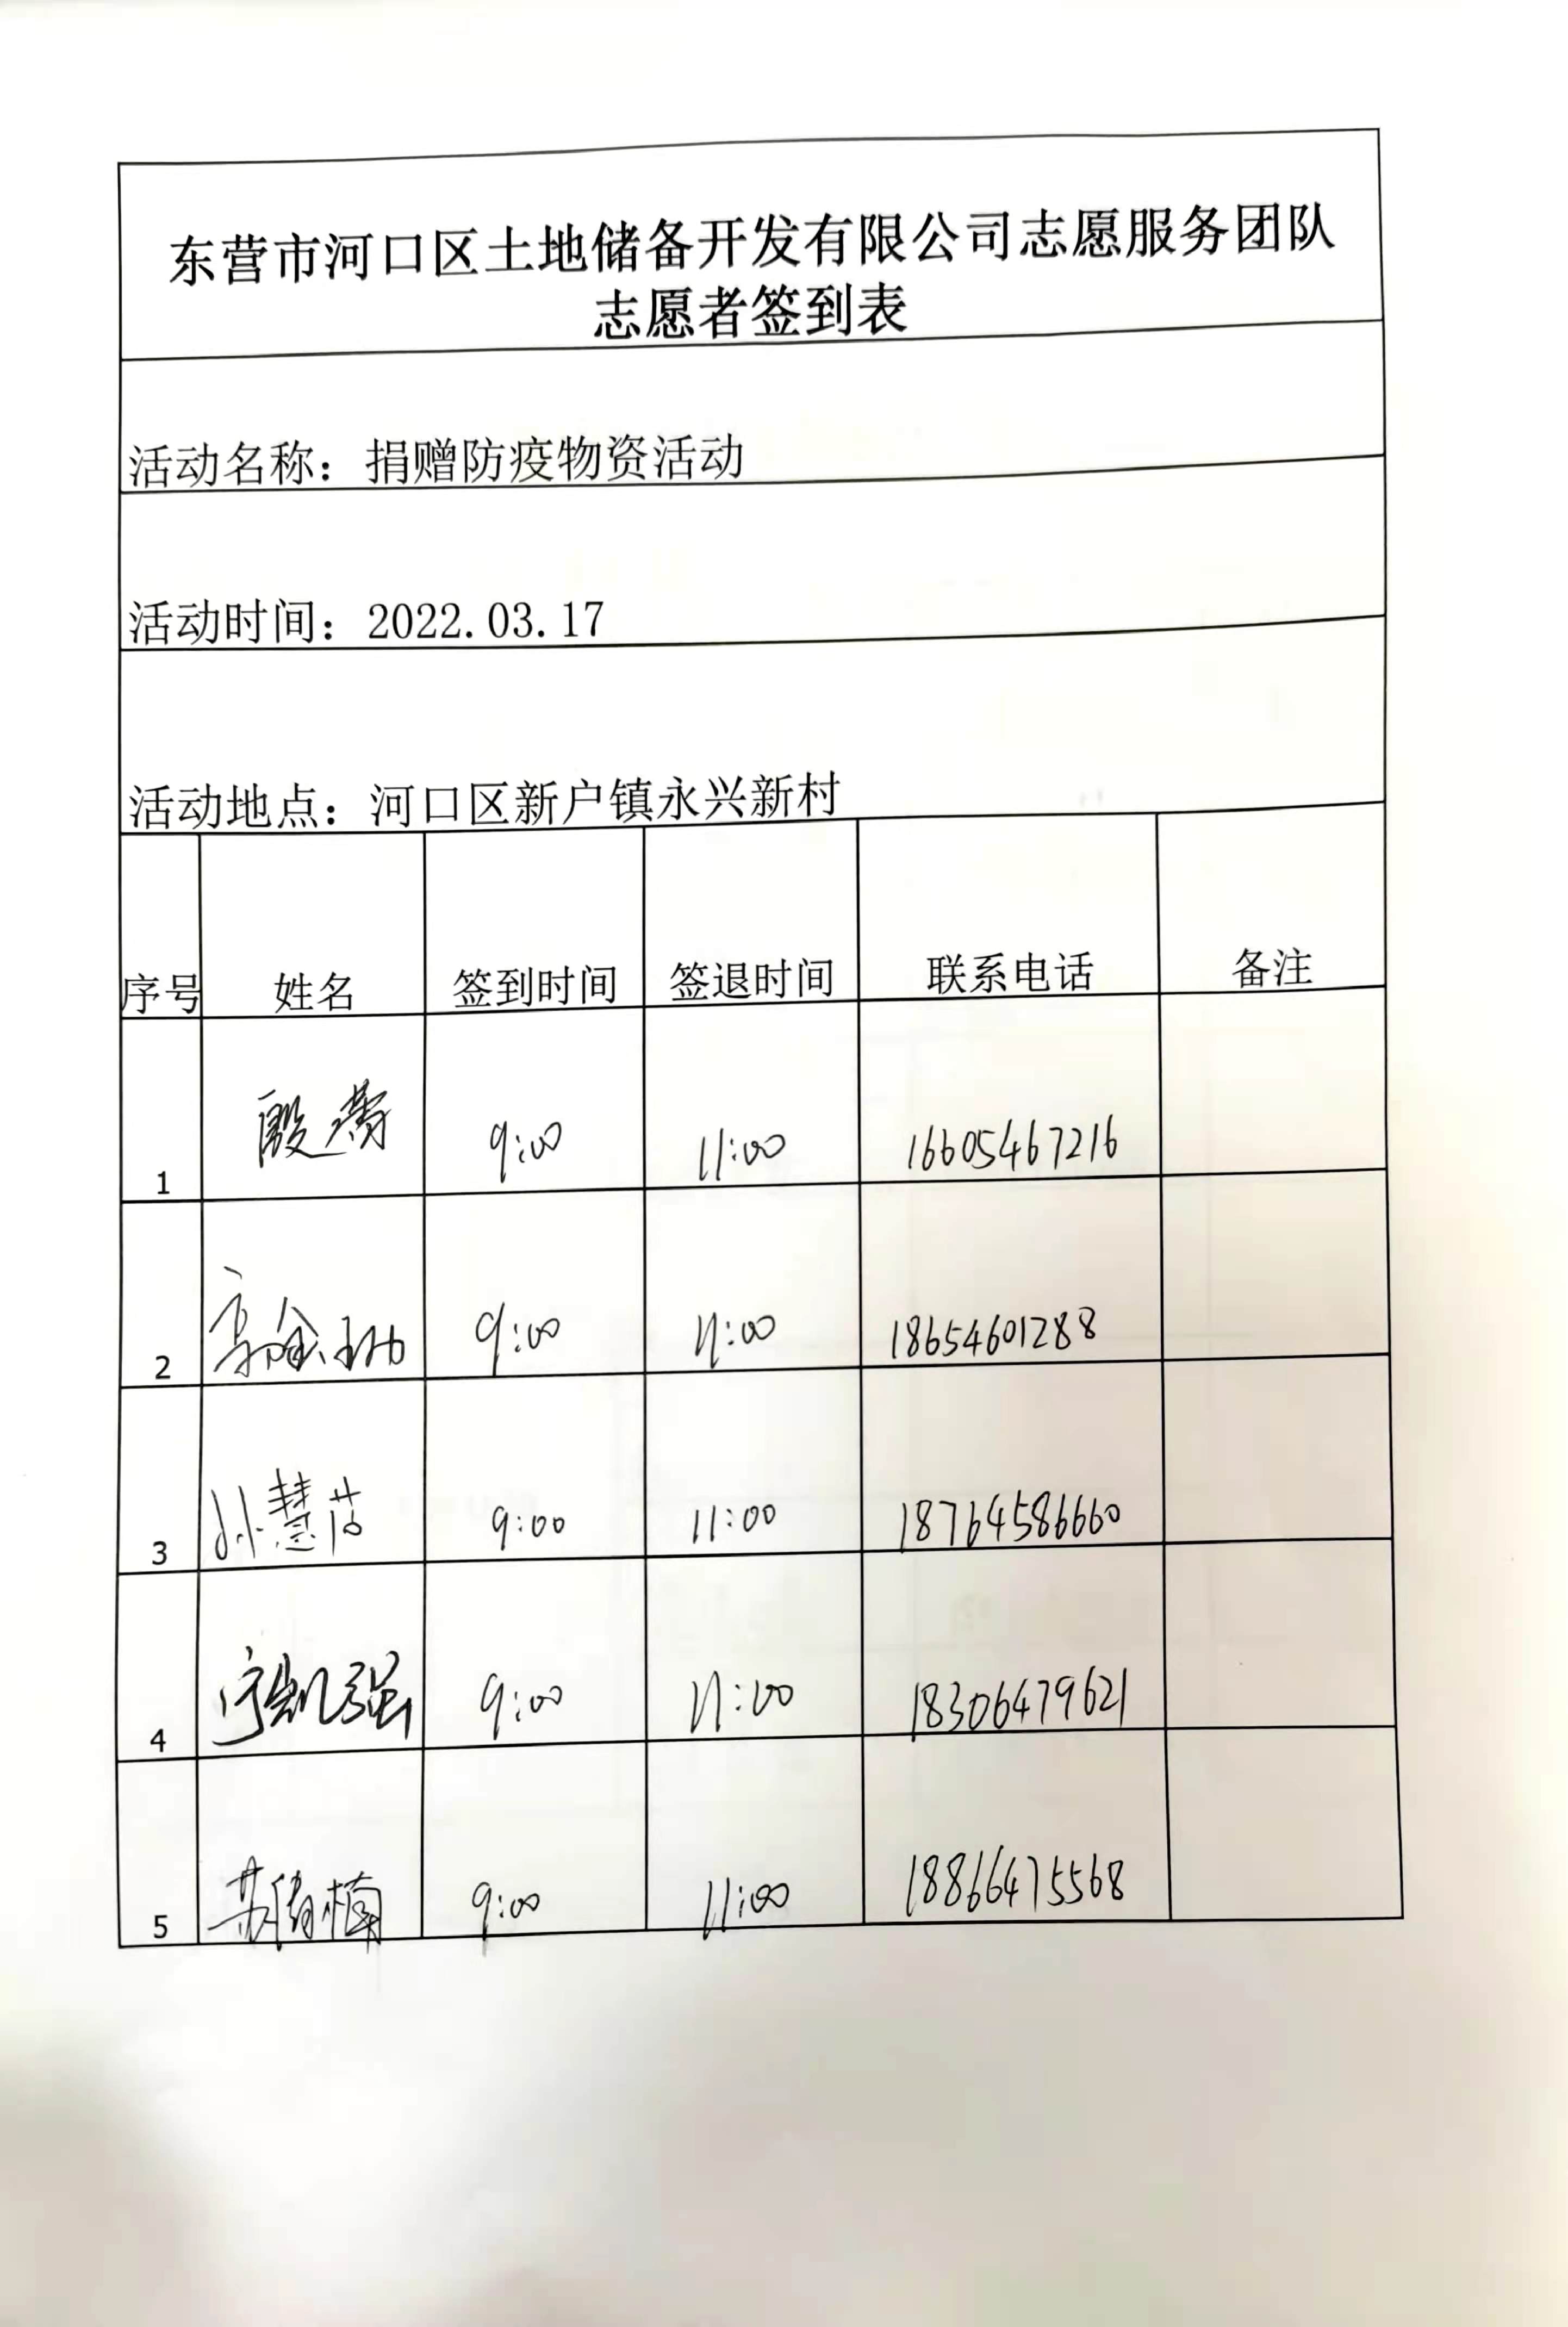 东营市河口区土地储备开发有限公司志愿服务团队
志愿者签到表
活动名称：捐赠防疫物资活动
活动时间：2022.03.17
活动地点：河口区新户镇永兴新村
序号 姓名 签到时间 签退时间 联系电话 备注
1 殷 9:00 11:00 16605467216
2 9:00 11:00 18654601288
3 孙慧 9:00 11:00 18764586660
4 宁凯强 9:00 11:00 18306479621
5 苏倩楠 9:00 11:00 18866475568